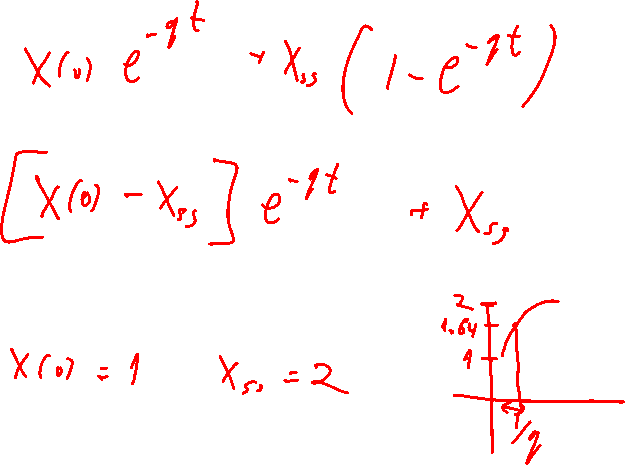 X(0) e^{-qt} + X_{ss} (1 - e^{-qt})
[X(0) - X_{ss}] e^{-qt} + X_{ss}
X(0) = 1 X_{ss} = 2
2
1.64
1
1/q